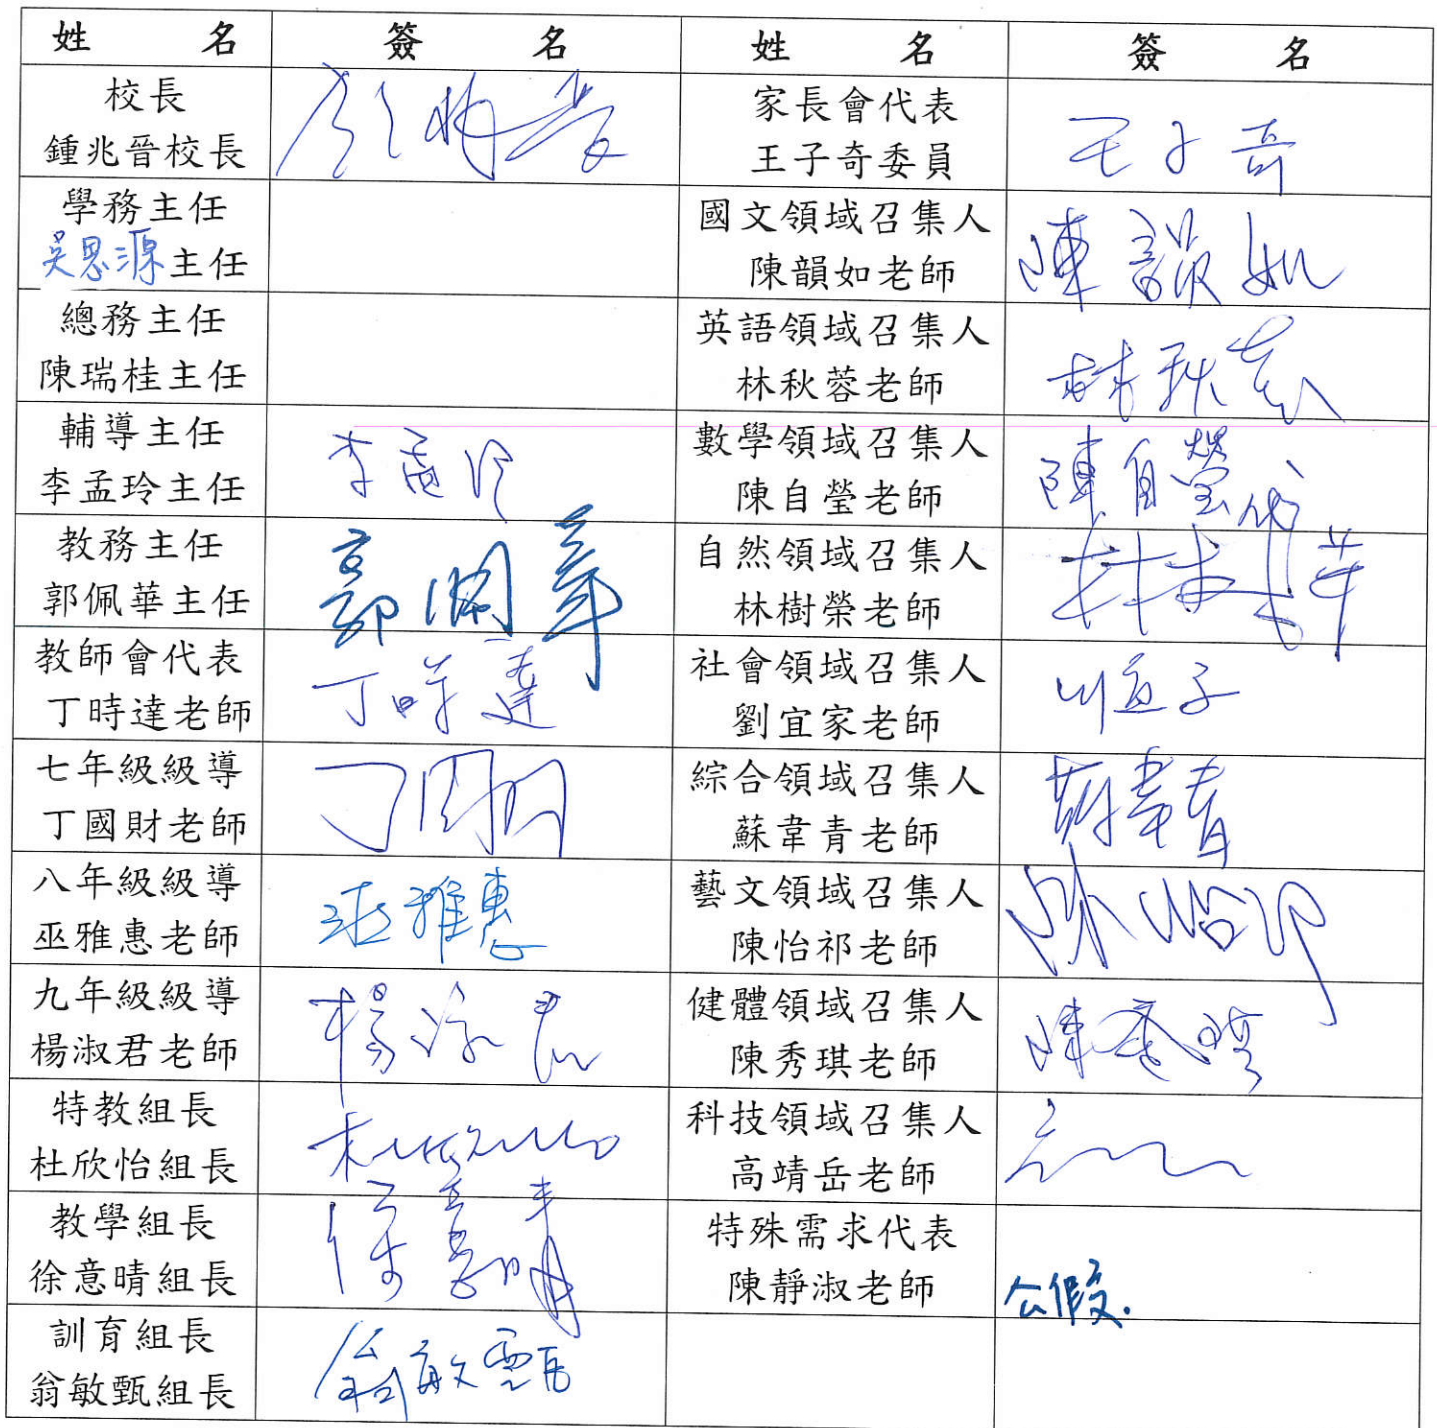 姓 名 簽 名 姓 名 簽 名
校長
鍾兆晉校長
家長會代表
王子奇委員
王子奇
學務主任
吳恩源主任
國文領域召集人
陳韻如老師
總務主任
陳瑞桂主任
英語領域召集人
林秋蓉老師
林秋蓉
輔導主任
李孟玲主任
李孟玲
數學領域召集人
陳自瑩老師
陳自瑩代
教務主任
郭佩華主任
自然領域召集人
林樹榮老師
教師會代表
丁時達老師
丁時達
社會領域召集人
劉宜家老師
七年級級導
丁國財老師
綜合領域召集人
蘇韋青老師
八年級級導
巫雅惠老師
巫雅惠
藝文領域召集人
陳怡祁老師
九年級級導
楊淑君老師
楊淑君
健體領域召集人
陳秀琪老師
陳秀琪
特教組長
杜欣怡組長
科技領域召集人
高靖岳老師
教學組長
徐意晴組長
徐意晴
特殊需求代表
陳靜淑老師
公假.
訓育組長
翁敏甄組長
翁敏甄